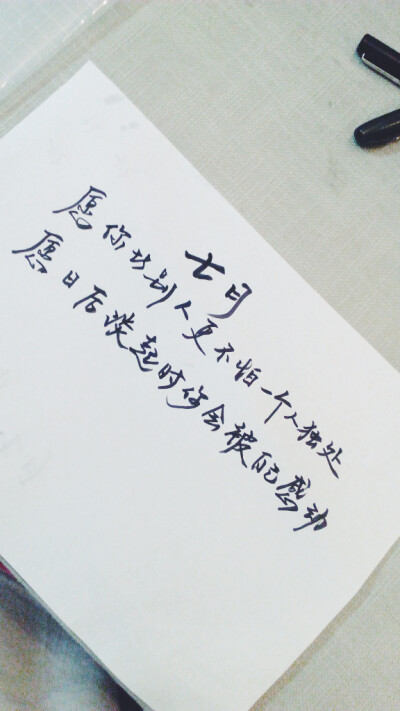 七月
愿你比别人更不怕一个人独处
愿日后谈起时你会被自己感动